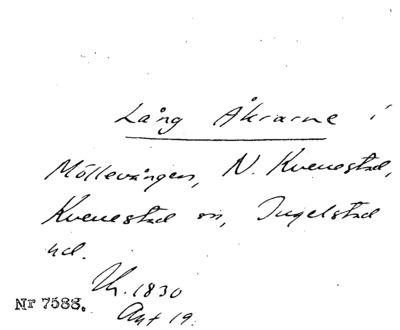 Lång Åkrarne i
Möllevången, N. Kvenestad,
Kvenestad sn, Ingelstad
hd.
1830
Nr 7588. Akt 19.